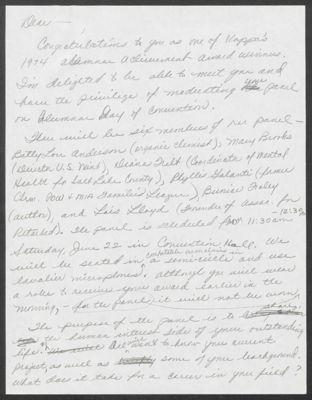 Dear —
Congratulations to you as one of Kappa's
1974 alumnae achievement award winners.
I'm delighted to be able to meet you and
have the privilege of moderating your panel
on Alumnae Day of Convention.
There will be six members of our panel —
Betty Lou Anderson (organic chemist), Mary Brooks
(Director U.S. Mint), Diana (Coordinator of Mental
Health for Salt Lake County), Phyllis Galanti (former
Chm. POW & MIA Families League), Bernice Foley
(author), and Lois Lloyd (Founder of Assoc. for
Retarded). The panel is scheduled for 11:30 am - 12:30 pm
Saturday, June 22 in Convention Hall. We
will be seated in comfortable armchairs in a semi-circle and use
lavalier microphones. Although you will wear
a robe to receive your award earlier in the
morning, - for the panel, it will not be worn.
The purpose of the panel is to
the human interest side of your outstanding
life. We want to know your current
project, as well as some of your background.
What does it take for a career in your field?